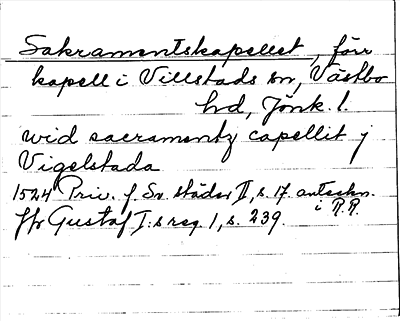 Sakramentskapellet, förr
kapell i Villstads sn, Västbo
hd, Jönk. l.
wid sacramentz capellit j
Vigelstada
1524 Priv. f. Sv. städer II, s. 17. anteckn.
i R.R.
ffr Gustaf I:s reg. 1, s. 239.